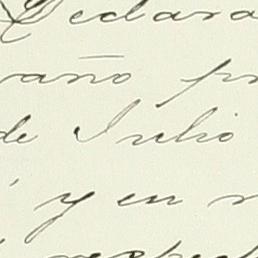 Declara
año pr
de Julio
y en